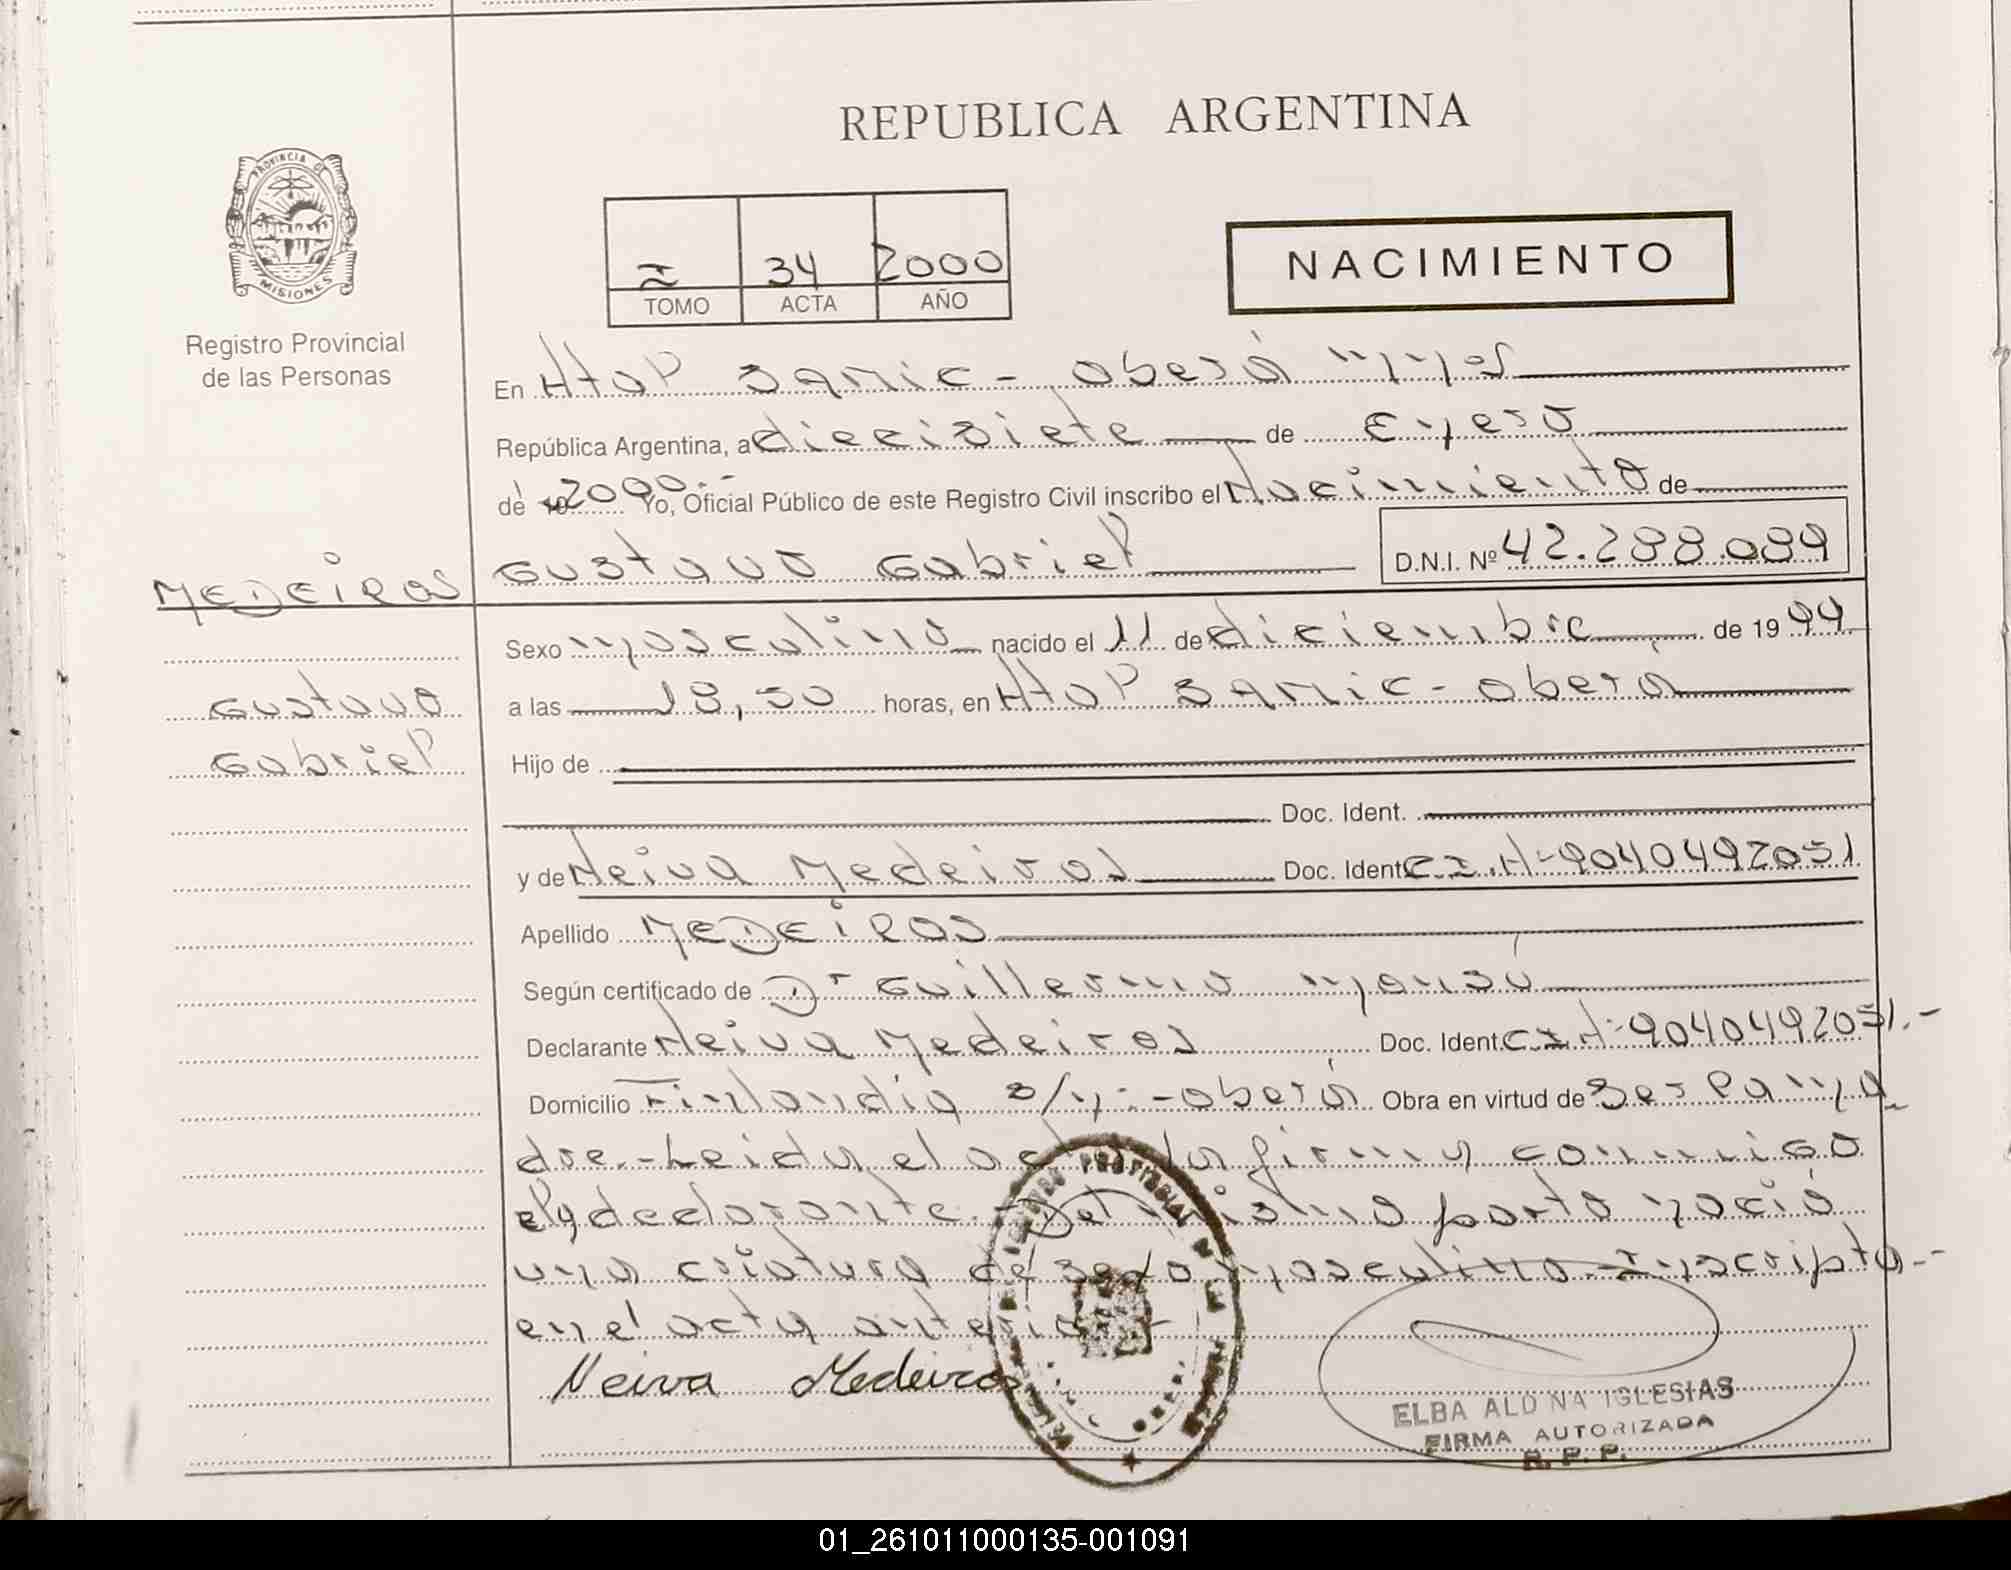 REPUBLICA ARGENTINA
PROVINCIA DE
MISIONES
Registro Provincial
de las Personas
I 34 2000
TOMO ACTA AÑO
NACIMIENTO
En Htal SAMIC - Oberá Mnes
República Argentina, a diecisiete de Enero
de 2000.- Yo, Oficial Público de este Registro Civil inscribo el Nacimiento de
MEDEIROS Gustavo Gabriel D.N.I. Nº 42.288.089
Sexo Masculino nacido el 11 de diciembre de 1999
Gustavo
Gabriel
a las 18,50 horas, en Htal SAMIC - Oberá
Hijo de
Doc. Ident.
y de Neiva Medeiros Doc. Ident. C.I.Nº 9040492051
Apellido MEDEIROS
Según certificado de Dr Guillermo Monsú
Declarante Neiva Medeiros Doc. Ident. C.I.Nº 9040492051.-
Domicilio Finlandia s/n: - Oberá Obra en virtud de Ser la ma
dre.- Leida el acta la firma conmigo
el declarante.- Del mismo parto nació
una criatura de sexo masculino inscripta.-
en el acta anterior.-
Neiva Medeiros
ELBA ALDINA IGLESIAS
FIRMA AUTORIZADA
R. P. P.
01_261011000135-001091